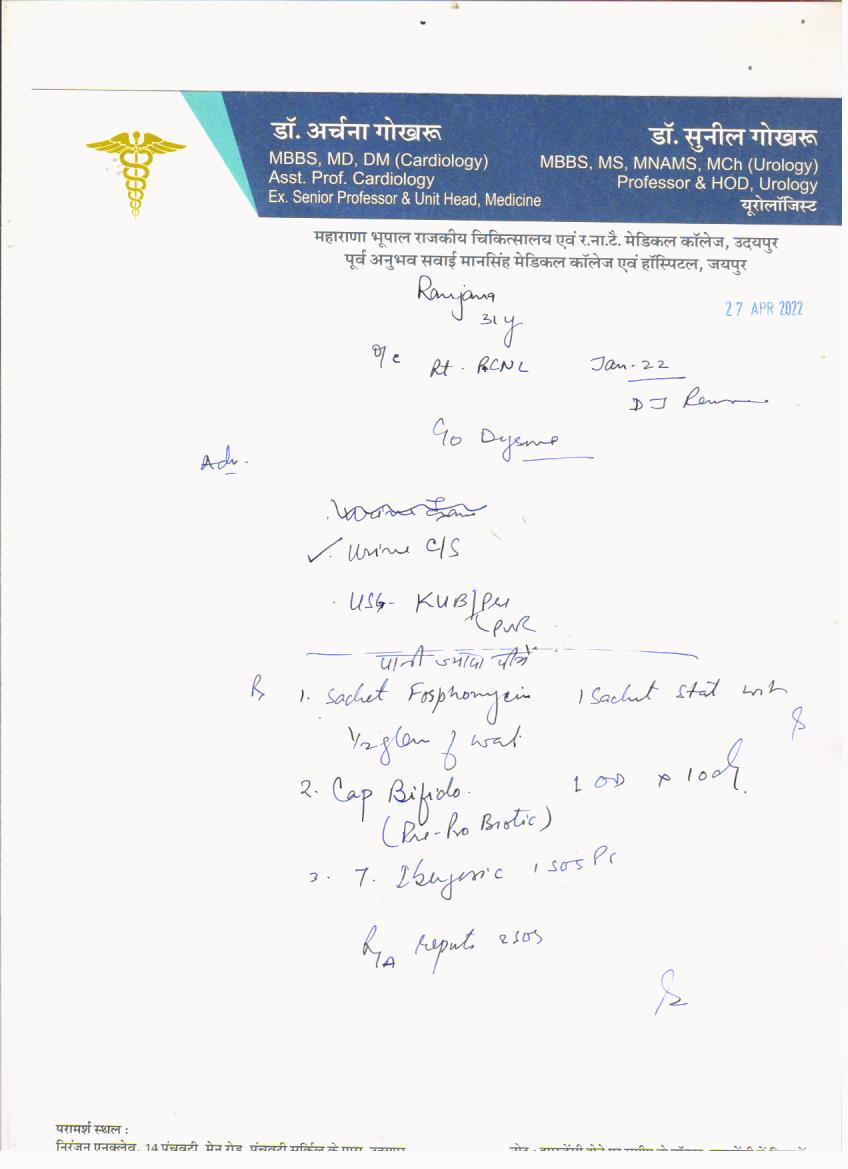 डॉ. अर्चना गोखरू
MBBS, MD, DM (Cardiology)
Asst. Prof. Cardiology
Ex. Senior Professor & Unit Head, Medicine
डॉ. सुनील गोखरू
MBBS, MS, MNAMS, MCh (Urology)
Professor & HOD, Urology
यूरोलॉजिस्ट
महाराणा भूपाल राजकीय चिकित्सालय एवं र.ना.टै. मेडिकल कॉलेज, उदयपुर
पूर्व अनुभव सवाई मानसिंह मेडिकल कॉलेज एवं हॉस्पिटल, जयपुर
Ranjana
27 APR 2022
31 y
Rt. PCNL Jan-22
DJ
Adv.
Urine C/S
USG- KUB/
PVR
पानी ज्यादा पीवें
R 1. Sachet Fosphomycin 1 Sachet stat with
1/2 glass of wat
2. Cap Bifido. 1 OD x 10d
(Pre-Pro Biotic)
3. T. 1 SOS
R/A reports & SOS
परामर्श स्थल :
निरंजन एनक्लेव, 14 पंचवटी, मेन रोड, पंचवटी सर्किल के पास, उदयपुर